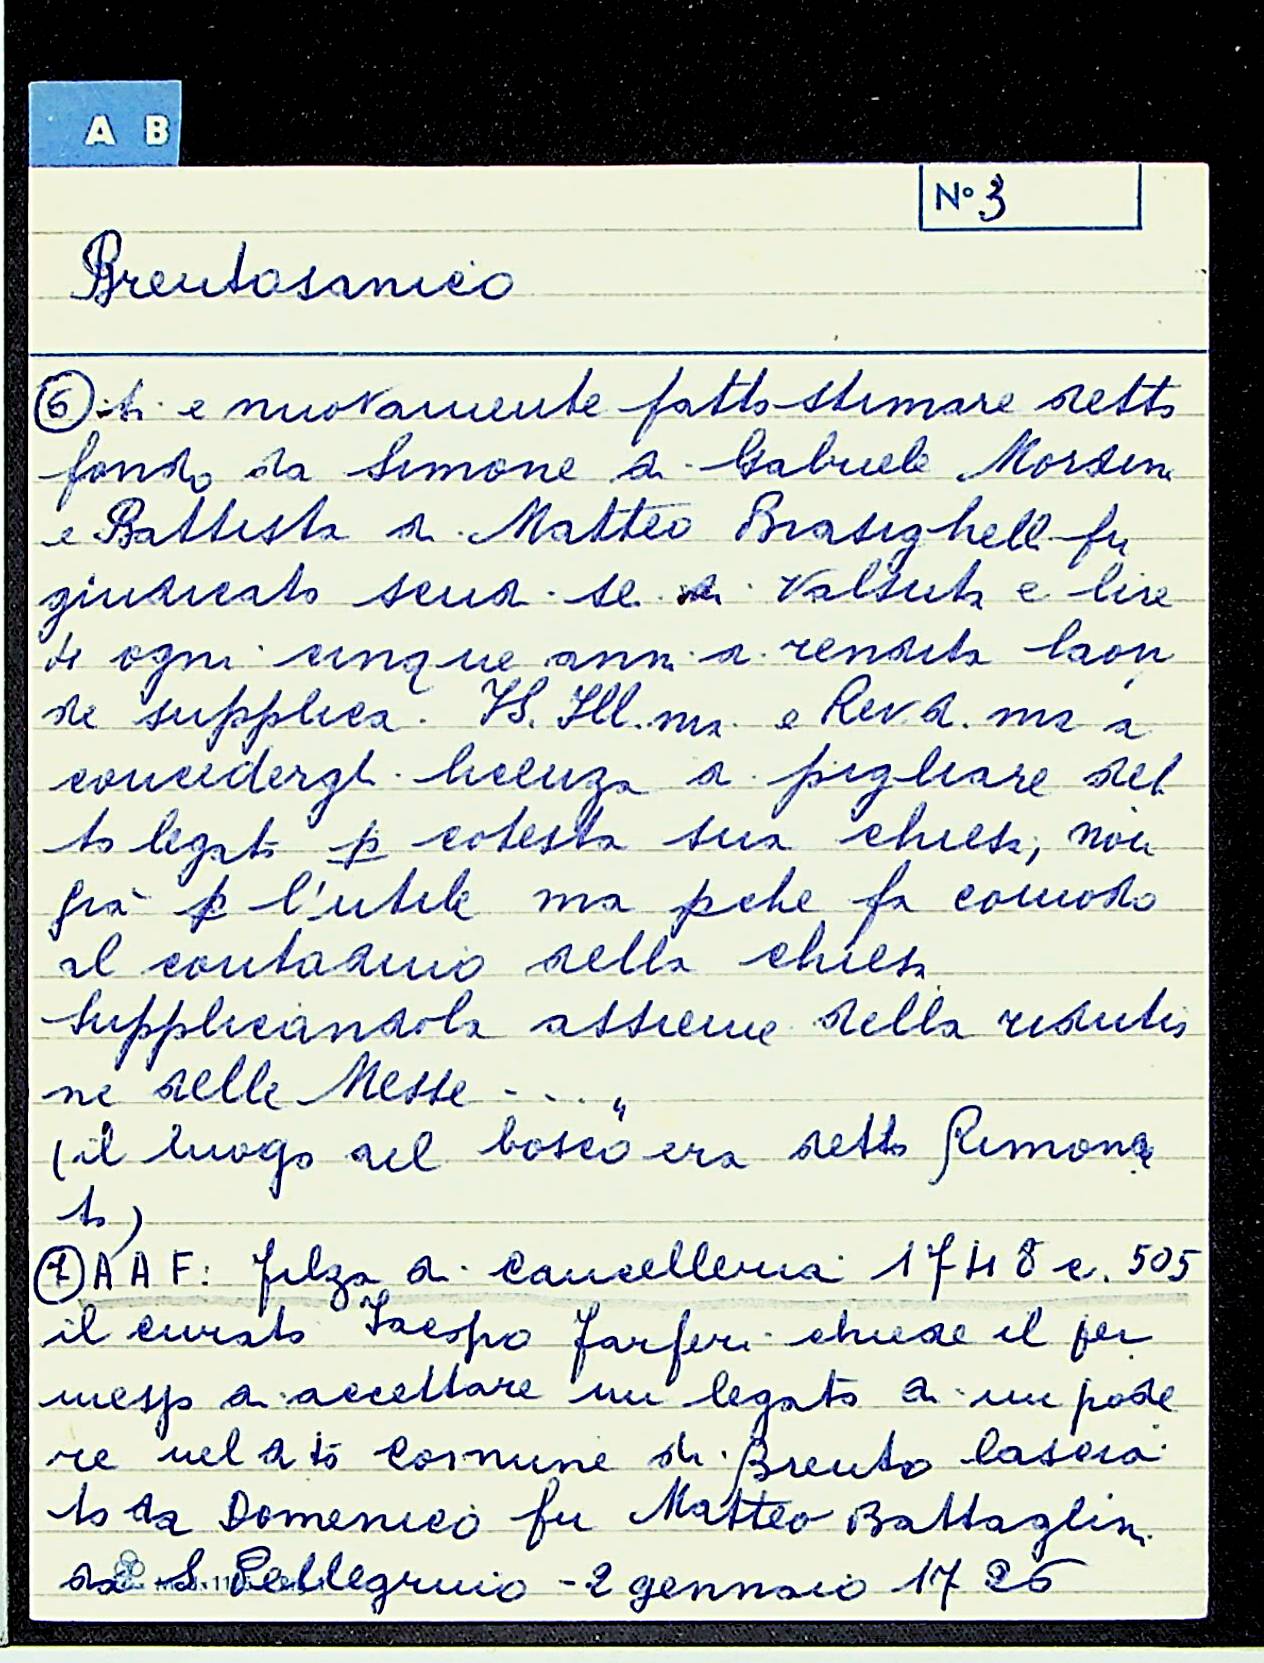 A B
N° 3
Brentosanico
⑥ ti e nuovamente fatto stimare detto
fondo da Simone di Gabriele Mordini
e Battista di Matteo Brasighelli fu
giudicato scudi sei di valsuta e lire
4 ogni cinque anni di rendita laon
de supplica VS. Ill.ma e Rev.d.ma a
concedergli licenza di pigliare det
to legato p cotesta sua chiesa, non
già p l'utile ma pche fa comodo
al contadino della chiesa
supplicandola assieme della redutio
ne delle Messe - ... "
(il luogo del bosco era detto Rimona
to)
⑦ A A F: Filza di cancelleria 1748 c. 505
il curato Jacopo Farferi chiede il per
messo di accettare un legato di un pode
re nel dto Comune di Brento lascia
to da Domenico fu Matteo Battaglini
da S. Pellegrino - 2 gennaio 1726